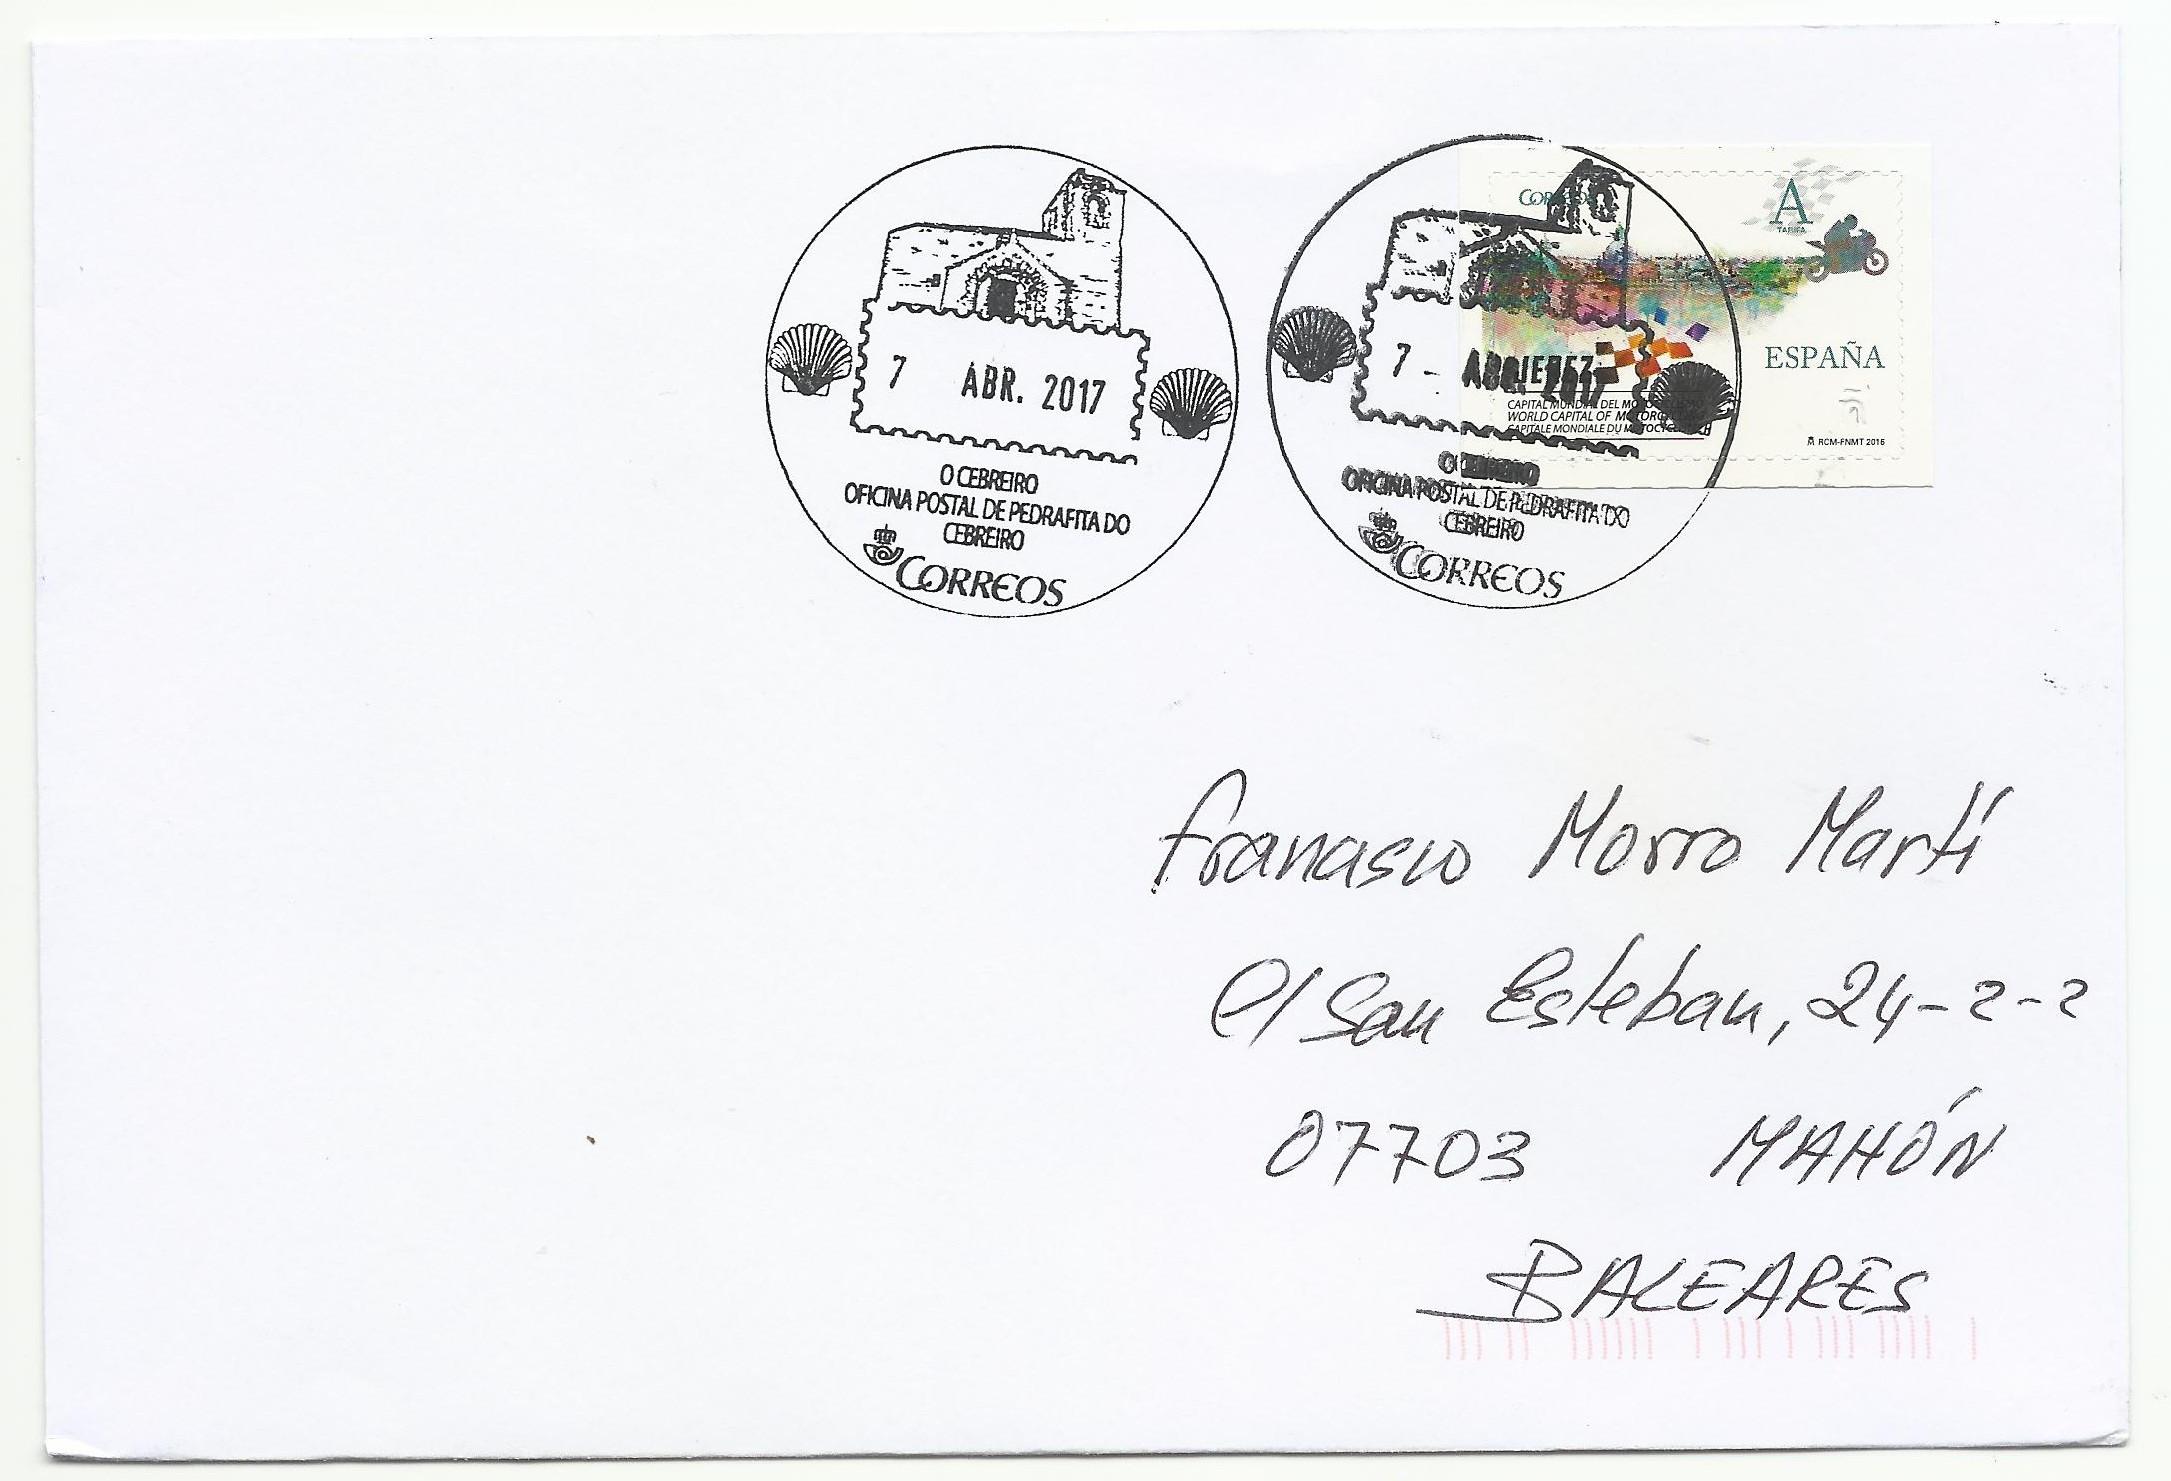 7 ABR. 2017
O CEBREIRO
OFICINA POSTAL DE PEDRAFITA DO
CEBREIRO
CORREOS
7 - ABR. 2017
O CEBREIRO
OFICINA POSTAL DE PEDRAFITA DO
CEBREIRO
CORREOS
CORREOS
A
TARIFA
ESPAÑA
JEREZ
CAPITAL MUNDIAL DEL MOTOCICLISMO
WORLD CAPITAL OF MOTORCYCLING
CAPITALE MONDIALE DU MOTOCYCLISME
RCM-FNMT 2016
Francisco Morro Martí
C/ San Esteban, 24-2-2
07703 MAHÓN
BALEARES